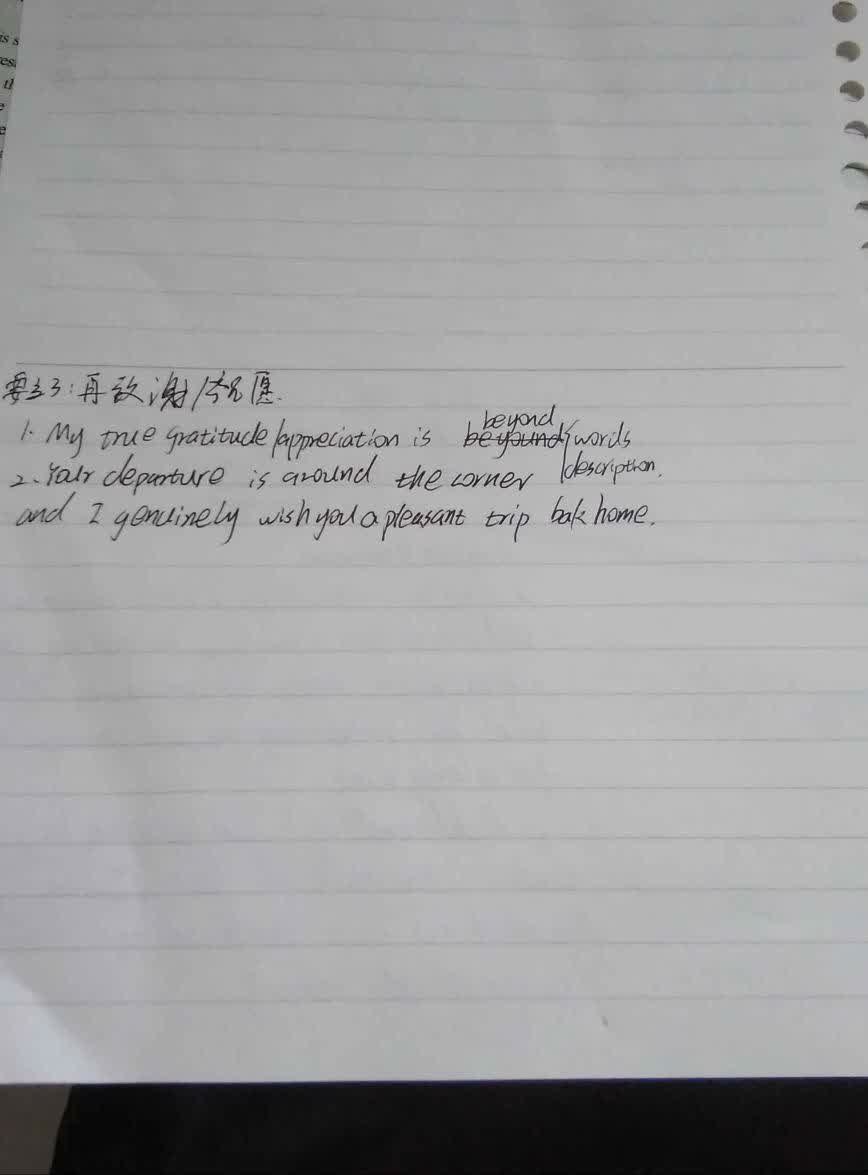 is s
res
th
e
e
要点3:再致谢/祝愿.
1. My true gratitude/appreciation is beyound beyond {words
description.
2. Your departure is around the corner
and I genuinely wish you a pleasant trip bak home.